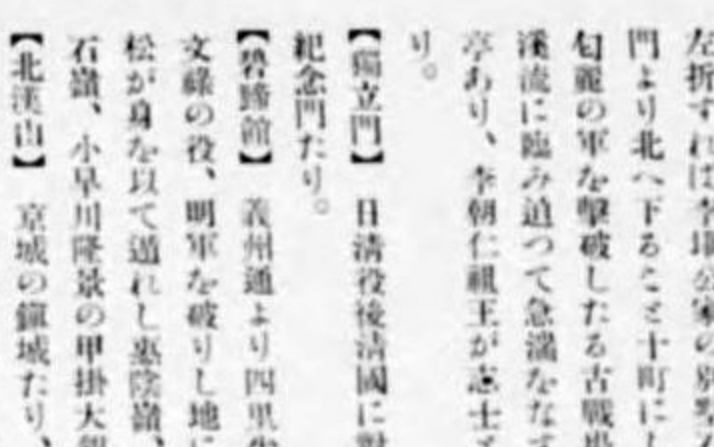 左折すれば李堈公家の別墅
門より北へ下ること十町に
句麗の軍を撃破したる古戰
溪流に臨み迫つて急湍をなす
亭あり、李朝仁祖王が志士
り。
【獨立門】 日淸役後淸國に對
紀念門たり。
【碧蹄館】 義州通より四里
文祿の役、明軍を破りし地に
松が身を以て遁れし惠陰嶺、
石嶺、小早川隆景の甲掛大
【北漢山】 京城の鎭城たり、